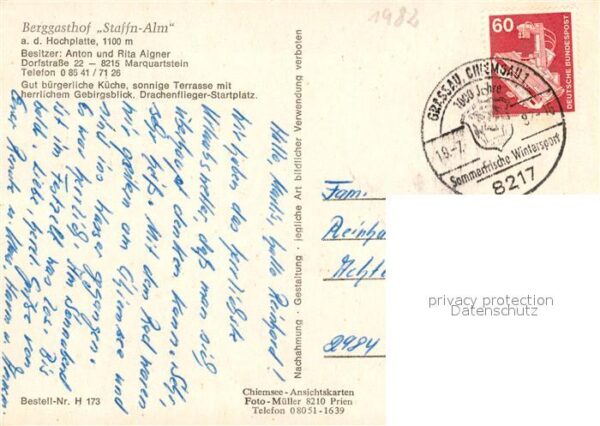 Berggasthof „Staffn-Alm"
a. d. Hochplatte, 1100 m
Besitzer: Anton und Rita Aigner
Dorfstraße 22 — 8215 Marquartstein
Telefon 0 85 41 / 71 26
Gut bürgerliche Küche, sonnige Terrasse mit
herrlichem Gebirgsblick. Drachenflieger-Startplatz.
1982
60
DEUTSCHE BUNDESPOST
GRASSAU, CHIEMGAU 1
1000 Jahre
19.-7.
Sommerfrische Wintersport
8217
Hallo, Reinhard!
wir haben das herrlichste
Urlaubswetter, daß man sich
denken kann. Sehr,
sehr heiß. Mit dem Rad waren
wir gestern am Chiemsee und
sind ins Wasser gegangen.
Es war herrlich. Am Sonnabend
ist im Festzelt was los. Bis
viele Grüße von
Nachahmung · Gestaltung · jegliche Art bildlicher Verwendung verboten
Fam.
2984
privacy protection
Datenschutz
Bestell-Nr. H 173
Chiemsee-Ansichtskarten
Foto-Müller 8210 Prien
Telefon 08051-1639